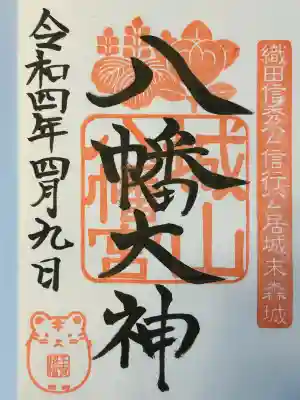 織田信秀公信行公居城末森城
八幡大神
城山
八幡宮
令和四年四月九日